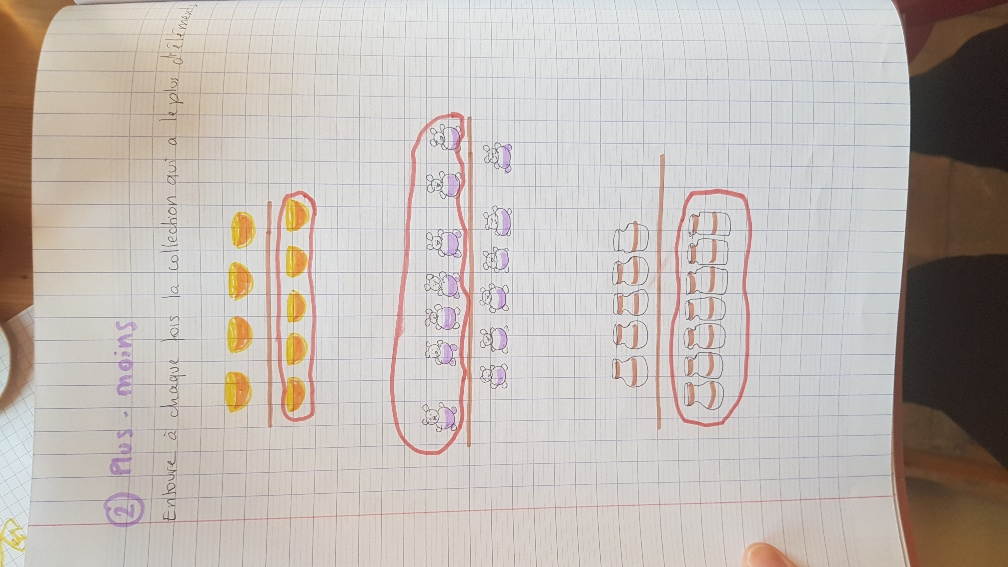 ② Plus - moins
Entoure à chaque fois la collection qui a le plus d'éléments